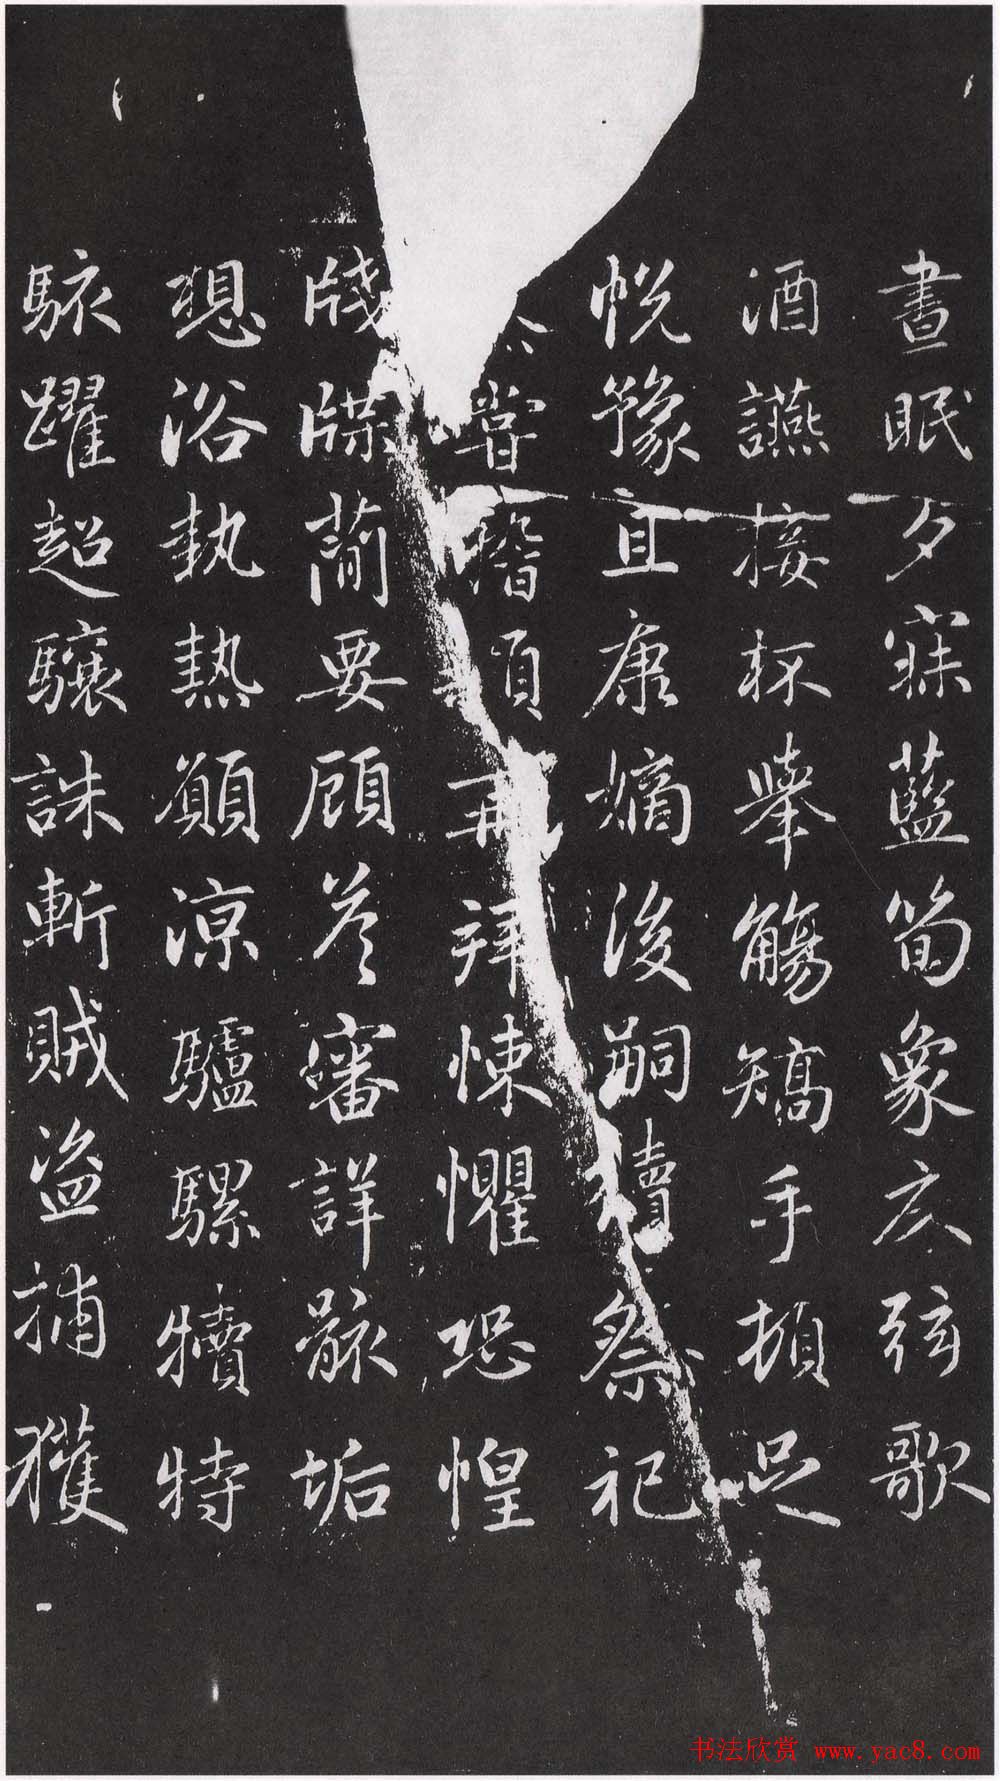 晝眠夕寐藍筍象床弦歌
酒讌接杯舉觴矯手頓足
悅豫且康嫡後嗣續祭祀
嘗稽再拜悚懼恐惶
牋牒簡要顧答審詳骸垢
想浴執熱願涼驢騾犢特
駭躍超驤誅斬賊盜捕獲
书法欣赏 www.yac8.com